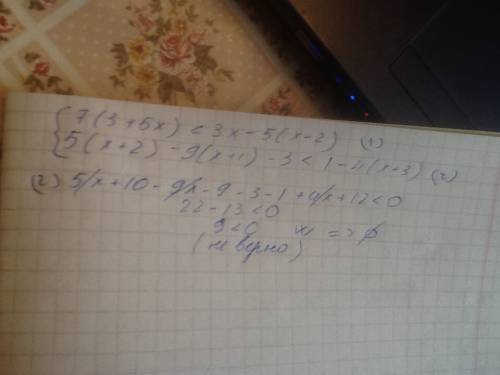 { 7(3+5x) < 3x-5(x-2) (1)
5(x+2) - 9(x+1) - 3 < 1 - 4(x+3) (2)
(2) 5x+10 - 9x - 9 - 3 - 1 + 4x + 12 < 0
22 - 13 < 0
9 < 0 => ∅
(не верно)